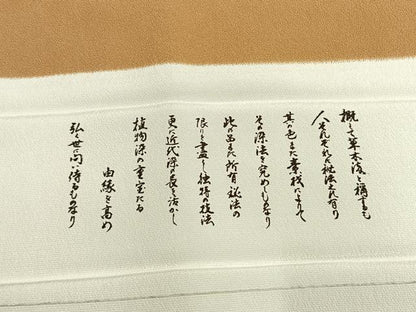 概して草木染と稱するも
人それぞれの秘法これ有り
其の色また素材によりて
その染法を究めしものなり
此の品また所有秘法の
限りを盡し独特の技法
更に近代染の長を活かし
植物染の重宝たる
由縁を高め
弘く世に問い侍るものなり